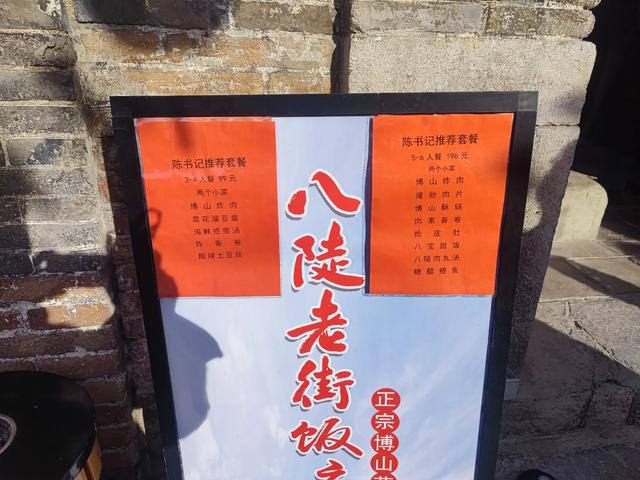 陈书记推荐套餐
3-4 人餐 99 元
两个小菜
博山炸肉
菜花溜豆腐
海鲜疙瘩汤
炸春卷
酸辣土豆丝
陈书记推荐套餐
5-6 人餐 198 元
两个小菜
博山炸肉
爆炒肉片
博山酥锅
肉素春卷
炝皮肚
八宝甜饭
八陡肉丸汤
糖醋鲤鱼
八陡老街饭
正宗博山